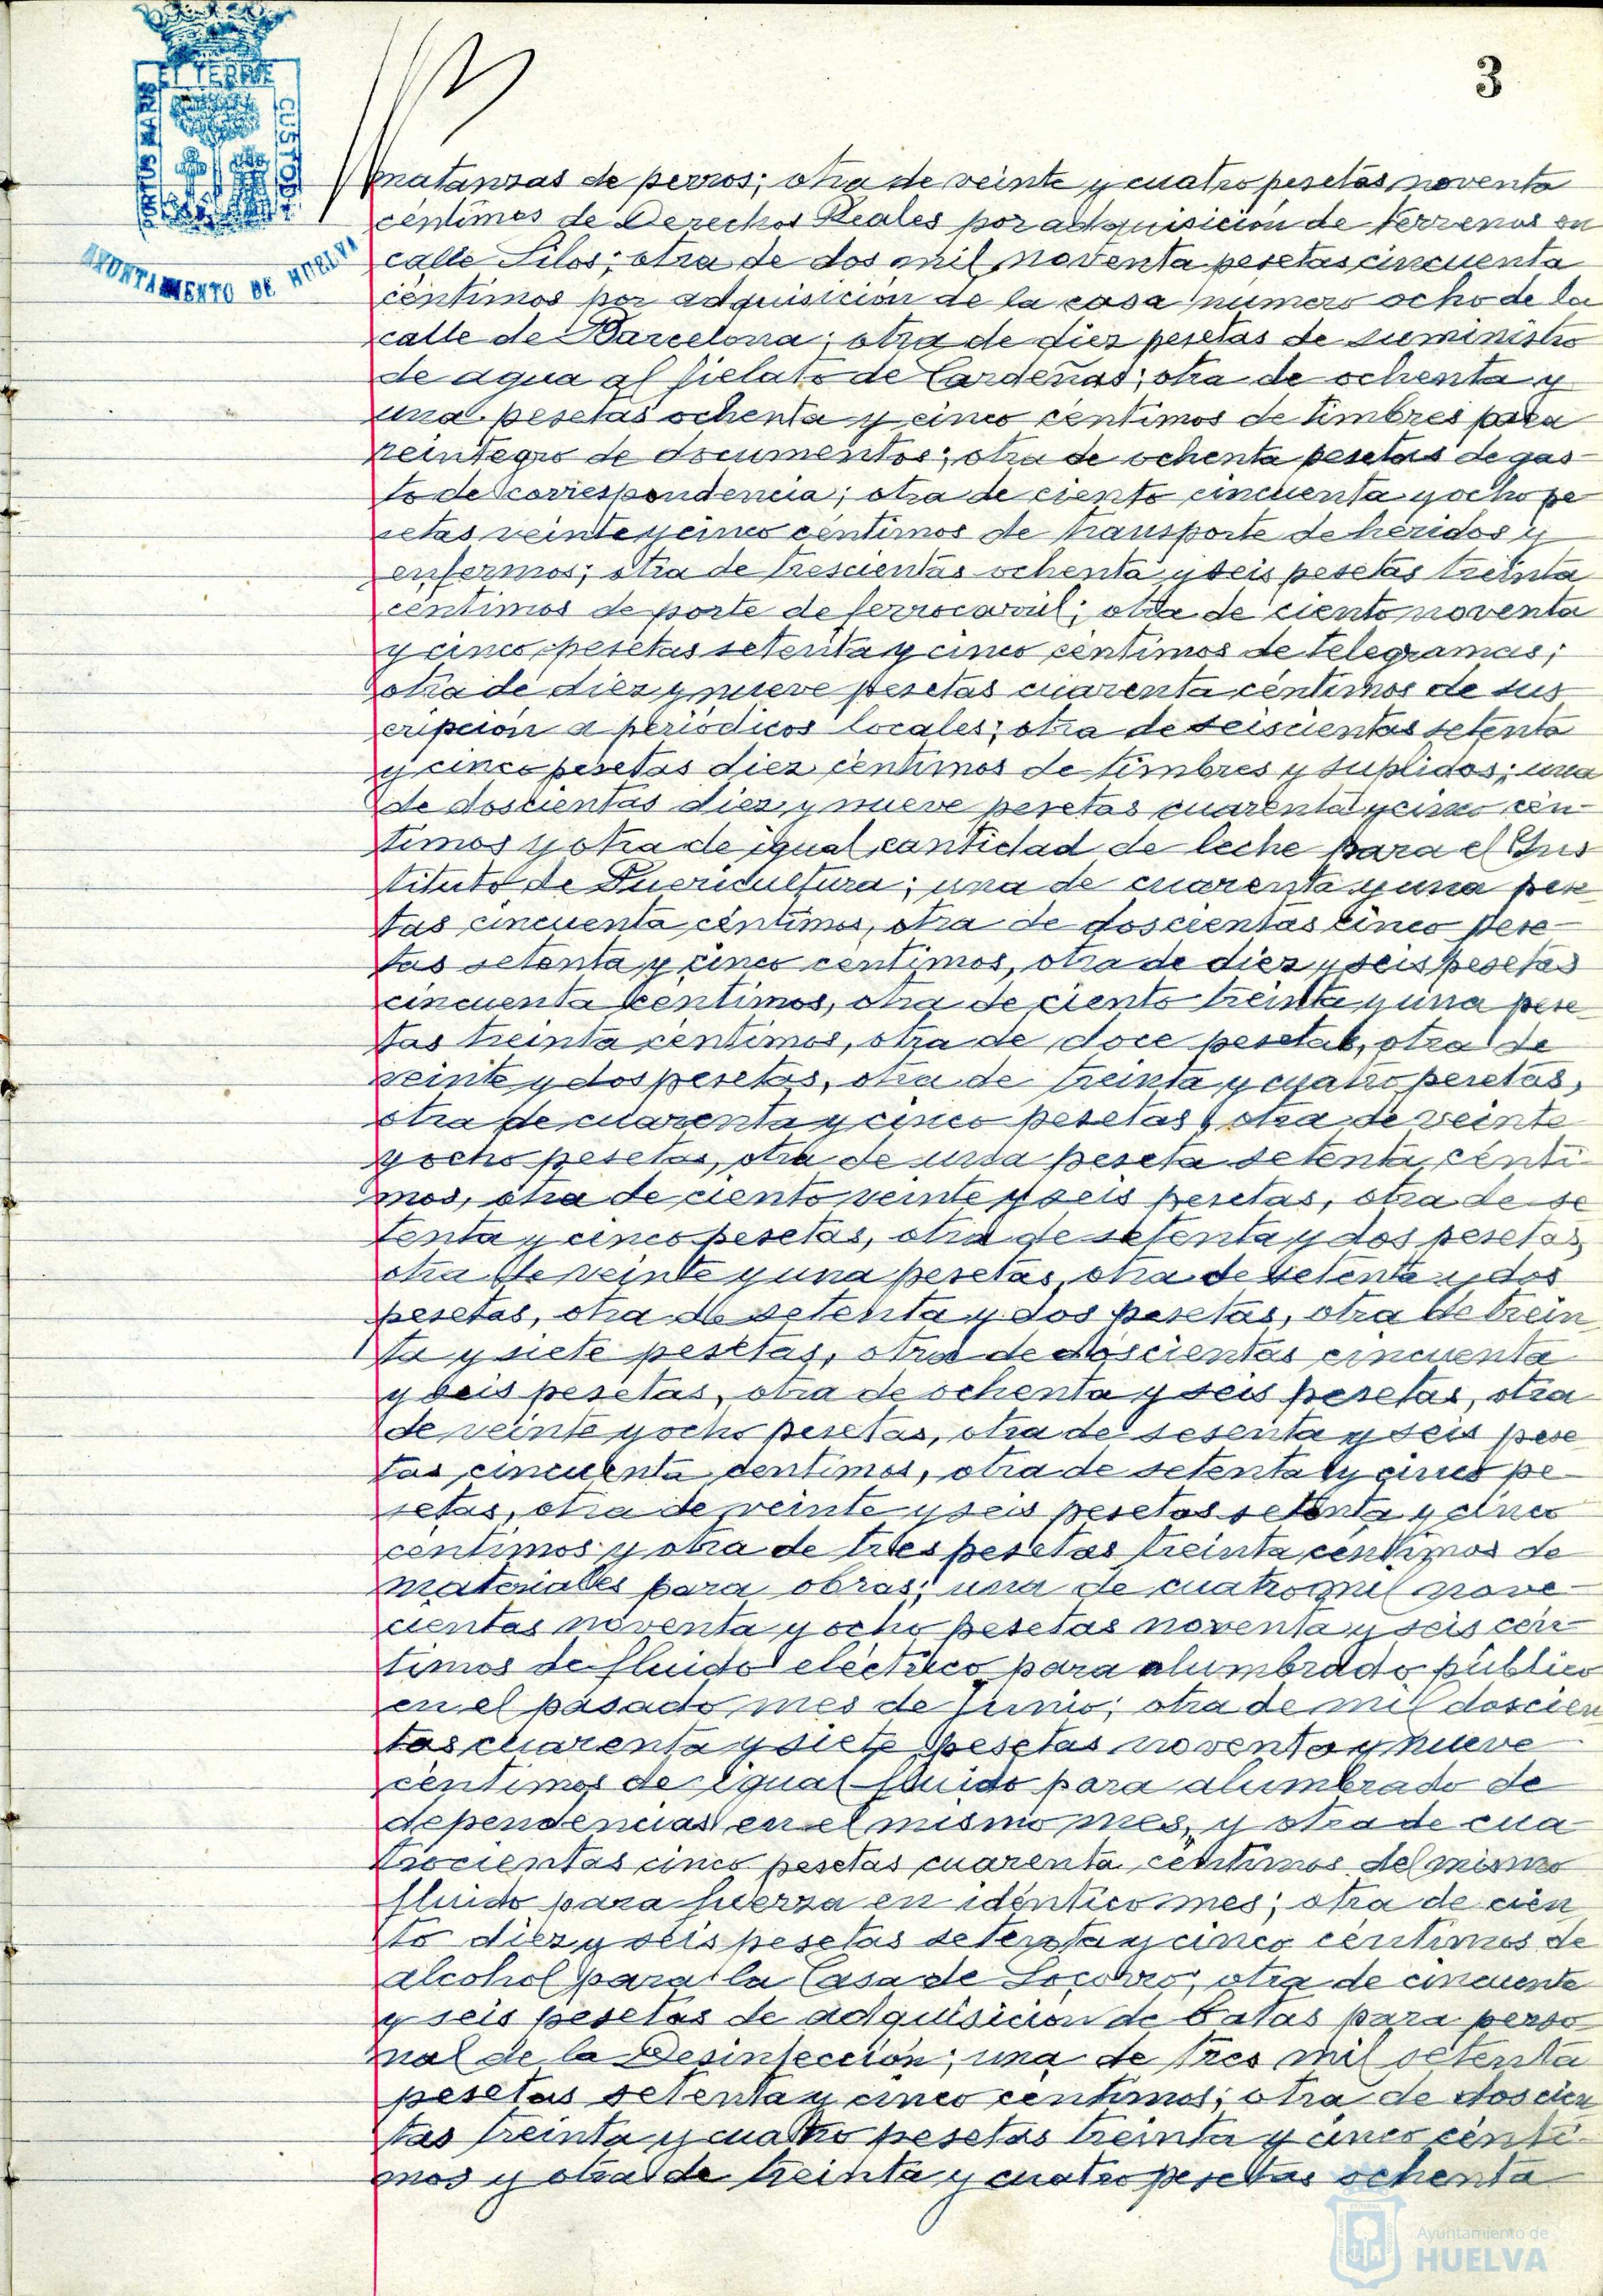 3
ET TERRÆ
PORTUS MARIS
CUSTODI
AYUNTAMIENTO DE HUELVA
matanzas de perros; otra de veinte y cuatro pesetas noventa
céntimos de Derechos Reales por adquisición de terrenos en
calle Silos; otra de dos mil noventa pesetas cincuenta
céntimos por adquisición de la casa número ocho de la
calle de Barcelona; otra de diez pesetas de suministro
de agua al fielato de Cardeñas; otra de ochenta y
una pesetas ochenta y cinco céntimos de timbres para
reintegro de documentos; otra de ochenta pesetas de gas-
to de correspondencia; otra de ciento cincuenta y ocho pe
setas veinte y cinco céntimos de transporte de heridos y
enfermos; otra de trescientas ochenta y seis pesetas treinta
céntimos de porte de ferrocarril; otra de ciento noventa
y cinco pesetas setenta y cinco céntimos de telegramas;
otra de diez y nueve pesetas cuarenta céntimos de sus
cripción a periódicos locales; otra de seiscientas setenta
y cinco pesetas diez céntimos de timbres y suplidos; una
de doscientas diez y nueve pesetas cuarenta y cinco cén-
timos y otra de igual cantidad de leche para el Ins
tituto de Puericultura; una de cuarenta y una pese
tas cincuenta céntimos, otra de doscientas cinco pese-
tas setenta y cinco centimos, otra de diez y seis pesetas
cincuenta céntimos, otra de ciento treinta y una pese
tas treinta céntimos, otra de doce pesetas, otra de
veinte y dos pesetas, otra de treinta y cuatro pesetas,
otra de cuarenta y cinco pesetas, otra de veinte
y ocho pesetas, otra de una peseta setenta cénti
mos, otra de ciento veinte y seis pesetas, otra de se
tenta y cinco pesetas, otra de setenta y dos pesetas,
otra de veinte y una pesetas, otra de setenta y dos
pesetas, otra de setenta y dos pesetas, otra de trein
ta y siete pesetas, otra de doscientas cincuenta
y seis pesetas, otra de ochenta y seis pesetas, otra
de veinte y ocho pesetas, otra de sesenta y seis pese
tas cincuenta centimos, otra de setenta y cinco pe
setas, otra de veinte y seis pesetas setenta y cinco
céntimos y otra de tres pesetas treinta céntimos de
materiales para obras; una de cuatro mil nove-
cientas noventa y ocho pesetas noventa y seis cén
timos de fluido eléctrico para alumbrado público
en el pasado mes de Junio; otra de mil doscien
tas cuarenta y siete pesetas noventa y nueve
céntimos de igual fluido para alumbrado de
dependencias en el mismo mes, y otra de cua
trocientas cinco pesetas cuarenta céntimos del mismo
fluido para fuerza en idéntico mes; otra de cien
to diez y seis pesetas setenta y cinco céntimos de
alcohol para la Casa de Socorro; otra de cincuenta
y seis pesetas de adquisición de batas para perso
nal de la Desinfección; una de tres mil setenta
pesetas setenta y cinco céntimos; otra de doscien
tas treinta y cuatro pesetas treinta y cinco cénti-
mos y otra de treinta y cuatro pesetas ochenta
Ayuntamiento de
HUELVA